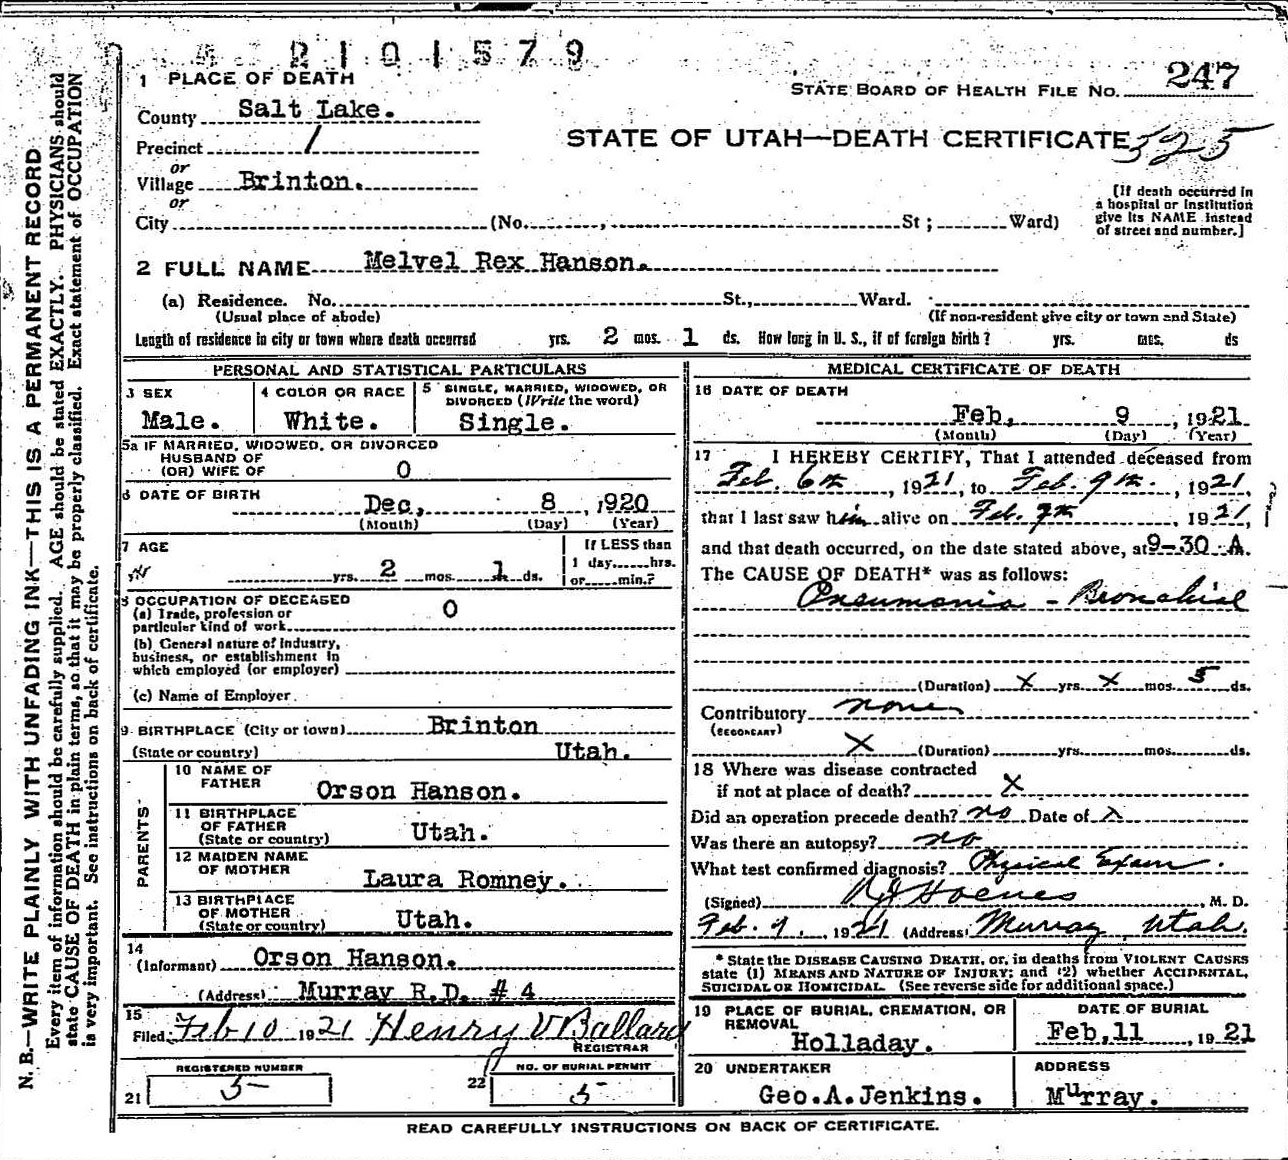 2101579
1 PLACE OF DEATH
STATE BOARD OF HEALTH FILE NO. 247
County Salt Lake.
STATE OF UTAH—DEATH CERTIFICATE 325
Precinct 1
or
Village Brinton.
or
City (No. , St ; Ward)
[If death occurred in
a hospital or institution
give its NAME instead
of street and number.]
2 FULL NAME Melvel Rex Hanson.
(a) Residence. No. St., Ward.
(Usual place of abode) (If non-resident give city or town and State)
Length of residence in city or town where death occurred yrs. 2 mos. 1 ds. How long in U. S., if of foreign birth? yrs. mos. ds
PERSONAL AND STATISTICAL PARTICULARS
3 SEX
Male.
4 COLOR OR RACE
White.
5 SINGLE, MARRIED, WIDOWED, OR
DIVORCED (Write the word)
Single.
5a IF MARRIED, WIDOWED, OR DIVORCED
HUSBAND OF
(OR) WIFE OF 0
6 DATE OF BIRTH
Dec, 8 , 1920
(Month) (Day) (Year)
7 AGE
yrs. 2 mos. 1 ds.
If LESS than
1 day hrs.
or min.?
8 OCCUPATION OF DECEASED
(a) Trade, profession or
particular kind of work 0
(b) General nature of industry,
business, or establishment in
which employed (or employer)
(c) Name of Employer
9 BIRTHPLACE (City or town) Brinton
(State or country) Utah.
PARENTS
10 NAME OF
FATHER Orson Hanson.
11 BIRTHPLACE
OF FATHER
(State or country) Utah.
12 MAIDEN NAME
OF MOTHER
Laura Romney.
13 BIRTHPLACE
OF MOTHER
(State or country) Utah.
14
(Informant) Orson Hanson.
(Address) Murray R.D. # 4
15
Filed Feb 10 1921 Henry V Ballard
REGISTRAR
REGISTERED NUMBER
21 5
22 NO. OF BURIAL PERMIT
5
MEDICAL CERTIFICATE OF DEATH
16 DATE OF DEATH
Feb, 9 , 1921
(Month) (Day) (Year)
17 I HEREBY CERTIFY, That I attended deceased from
Feb. 6th , 1921, to Feb. 9th. , 1921,
that I last saw him alive on Feb. 9th , 1921,
and that death occurred, on the date stated above, at 9-30 A.
The CAUSE OF DEATH* was as follows:
Pneumonia - Bronchial
(Duration) X yrs. X mos. 5 ds.
Contributory none
(SECONDARY)
X (Duration) yrs. mos. ds.
18 Where was disease contracted
if not at place of death? X
Did an operation precede death? no Date of X
Was there an autopsy? no
What test confirmed diagnosis? Physical Exam.
(Signed) , M. D.
Feb. 9. , 1921 (Address) Murray, Utah.
* State the DISEASE CAUSING DEATH, or, in deaths from VIOLENT CAUSES
state (1) MEANS AND NATURE OF INJURY; and (2) whether ACCIDENTAL,
SUICIDAL OR HOMICIDAL. (See reverse side for additional space.)
19 PLACE OF BURIAL, CREMATION, OR
REMOVAL
Holladay.
DATE OF BURIAL
Feb,11 , 1921
20 UNDERTAKER
Geo.A.Jenkins.
ADDRESS
Murray.
READ CAREFULLY INSTRUCTIONS ON BACK OF CERTIFICATE.
N. B.—WRITE PLAINLY WITH UNFADING INK—THIS IS A PERMANENT RECORD
Every item of information should be carefully supplied. AGE should be stated EXACTLY. PHYSICIANS should
state CAUSE OF DEATH in plain terms, so that it may be properly classified. Exact statement of OCCUPATION
is very important. See instructions on back of certificate.